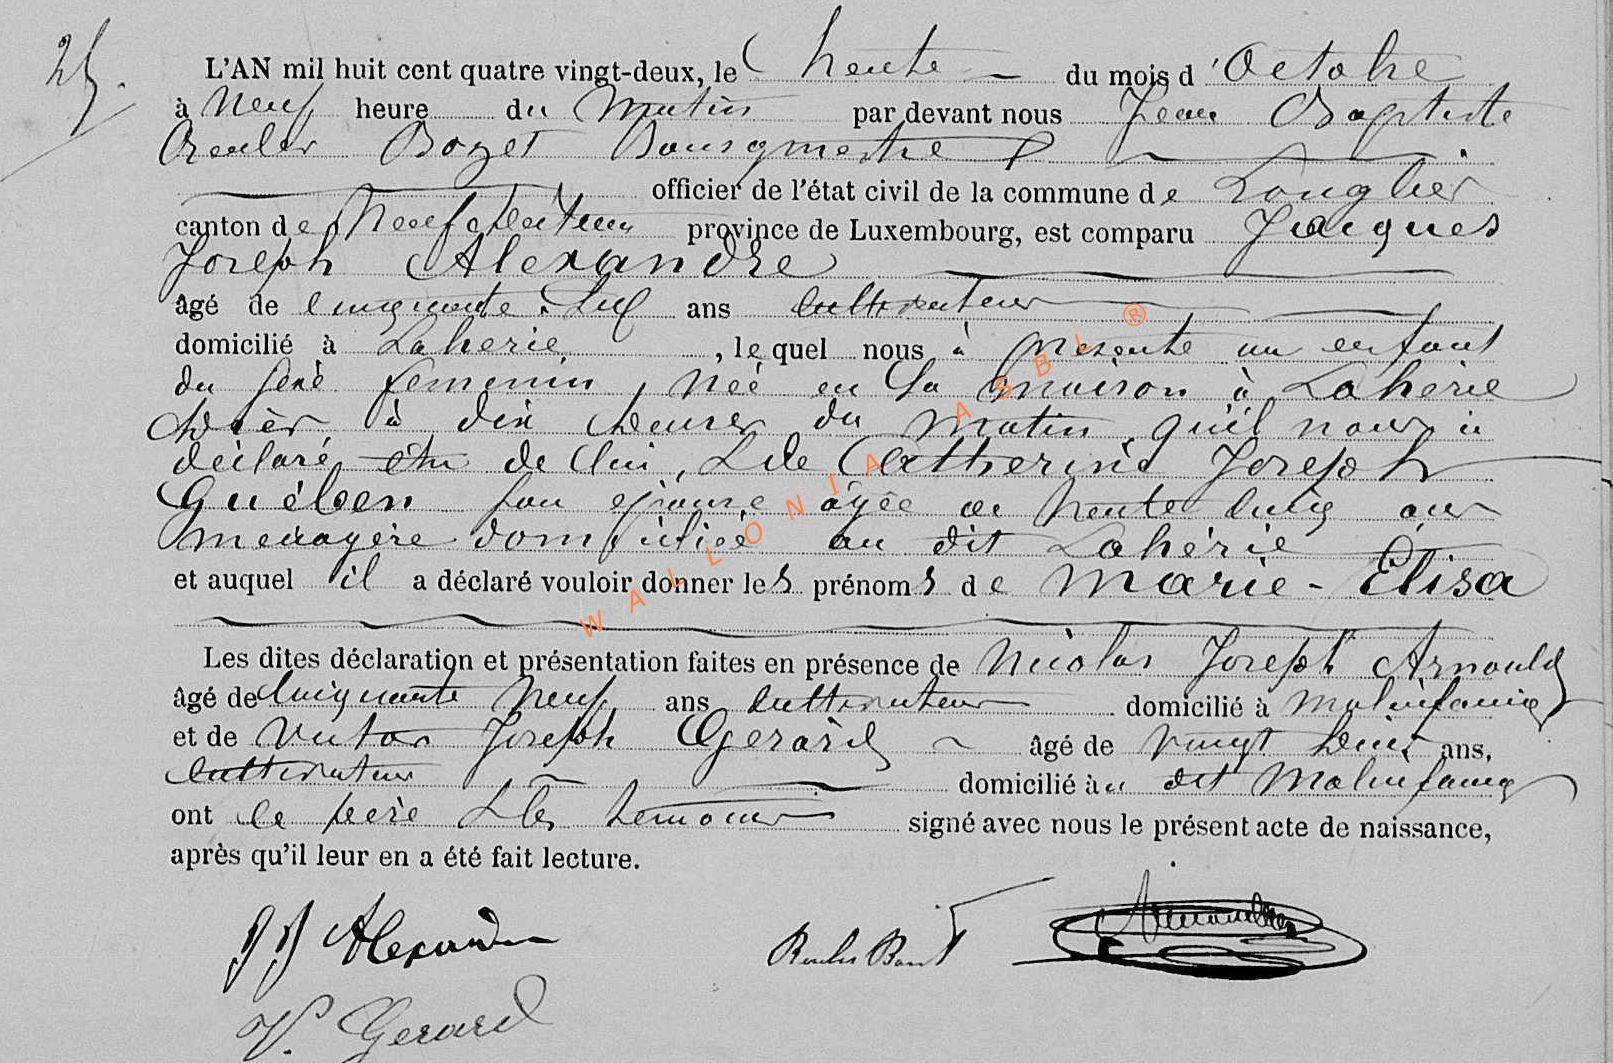 25.
L'AN mil huit cent quatre vingt-deux, le trente du mois d'Octobre
à Neuf heure du Matin par devant nous Jean Baptiste
Reuler Bozet Bourgmestre
officier de l'état civil de la commune de Longlier
canton de Neufchâteau province de Luxembourg, est comparu Jacques
Joseph Alexandre
âgé de Cinquante Six ans Cultivateur
domicilié à Lahérie, lequel nous à présenté un enfant
du sexe féminin, née en sa maison à Lahérie
hier, à dix heures du Matin, qu'il nous a
déclaré être de lui, & de Catherine Joseph
Guében son épouse âgée de trente cinq ans
ménagère domiciliée au dit Lahérie
et auquel il a déclaré vouloir donner les prénoms de Marie-Élisa
Les dites déclaration et présentation faites en présence de Nicolas Joseph Arnould
âgé de Cinquante Neuf ans Cultivateur domicilié à Molinfaing
et de Victor Joseph Gérard âgé de vingt deux ans,
Cultivateur domicilié au dit Molinfaing
ont le père & les témoins signé avec nous le présent acte de naissance,
après qu'il leur en a été fait lecture.
JJ Alexandre
V. Gerard
WALLONIA ASBL ®